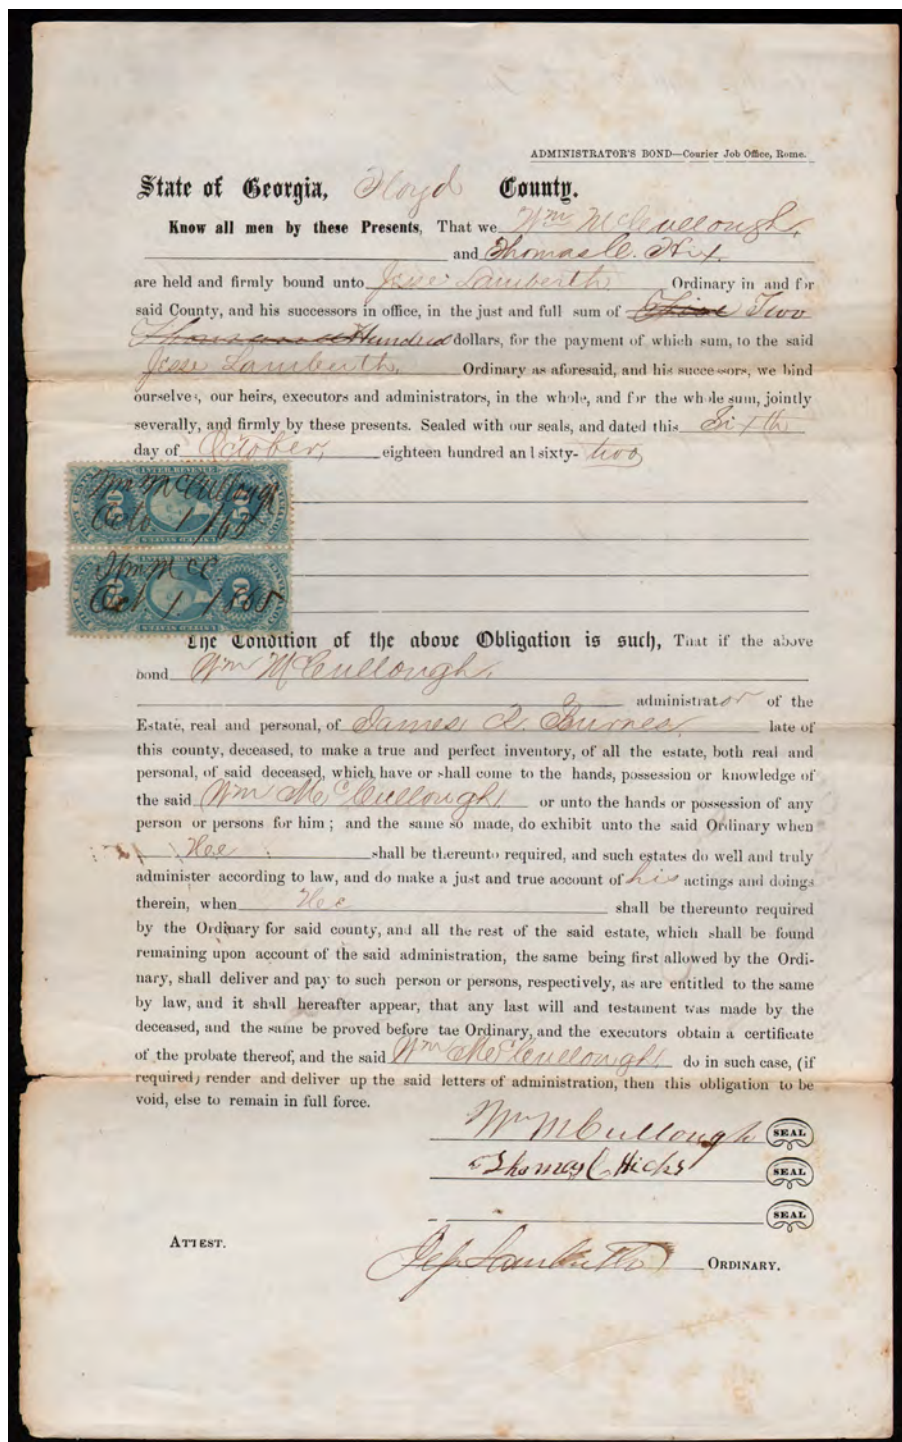 ADMINISTRATOR'S BOND—Courier Job Office, Rome.
State of Georgia, Floyd County.
Know all men by these Presents, That we Wm McCullough,
and Thomas C. Hix.
are held and firmly bound unto Jesse Lamberth Ordinary in and for
said County, and his successors in office, in the just and full sum of Two
Hundred dollars, for the payment of which sum, to the said
Jesse Lamberth. Ordinary as aforesaid, and his successors, we bind
ourselves, our heirs, executors and administrators, in the whole, and for the whole sum, jointly
severally, and firmly by these presents. Sealed with our seals, and dated this Sixth
day of October, eighteen hundred and sixty-two
INTER. REVENUE
Wm McCullough
Oct 1 /65
UNITED STATES
Wm McC
Oct 1 1865
UNITED STATES
The Condition of the above Obligation is such, That if the above
bond Wm McCullough.
administrator of the
Estate, real and personal, of James R. Burnes late of
this county, deceased, to make a true and perfect inventory, of all the estate, both real and
personal, of said deceased, which have or shall come to the hands, possession or knowledge of
the said Wm McCullough or unto the hands or possession of any
person or persons for him; and the same so made, do exhibit unto the said Ordinary when
Hee shall be thereunto required, and such estates do well and truly
administer according to law, and do make a just and true account of his actings and doings
therein, when Hee shall be thereunto required
by the Ordinary for said county, and all the rest of the said estate, which shall be found
remaining upon account of the said administration, the same being first allowed by the Ordi-
nary, shall deliver and pay to such person or persons, respectively, as are entitled to the same
by law, and it shall hereafter appear, that any last will and testament was made by the
deceased, and the same be proved before tae Ordinary, and the executors obtain a certificate
of the probate thereof, and the said Wm McCullough do in such case, (if
required) render and deliver up the said letters of administration, then this obligation to be
void, else to remain in full force.
Wm McCullough SEAL
Thomas C Hicks SEAL
SEAL
ATTEST.
Jesse Lamberth ORDINARY.